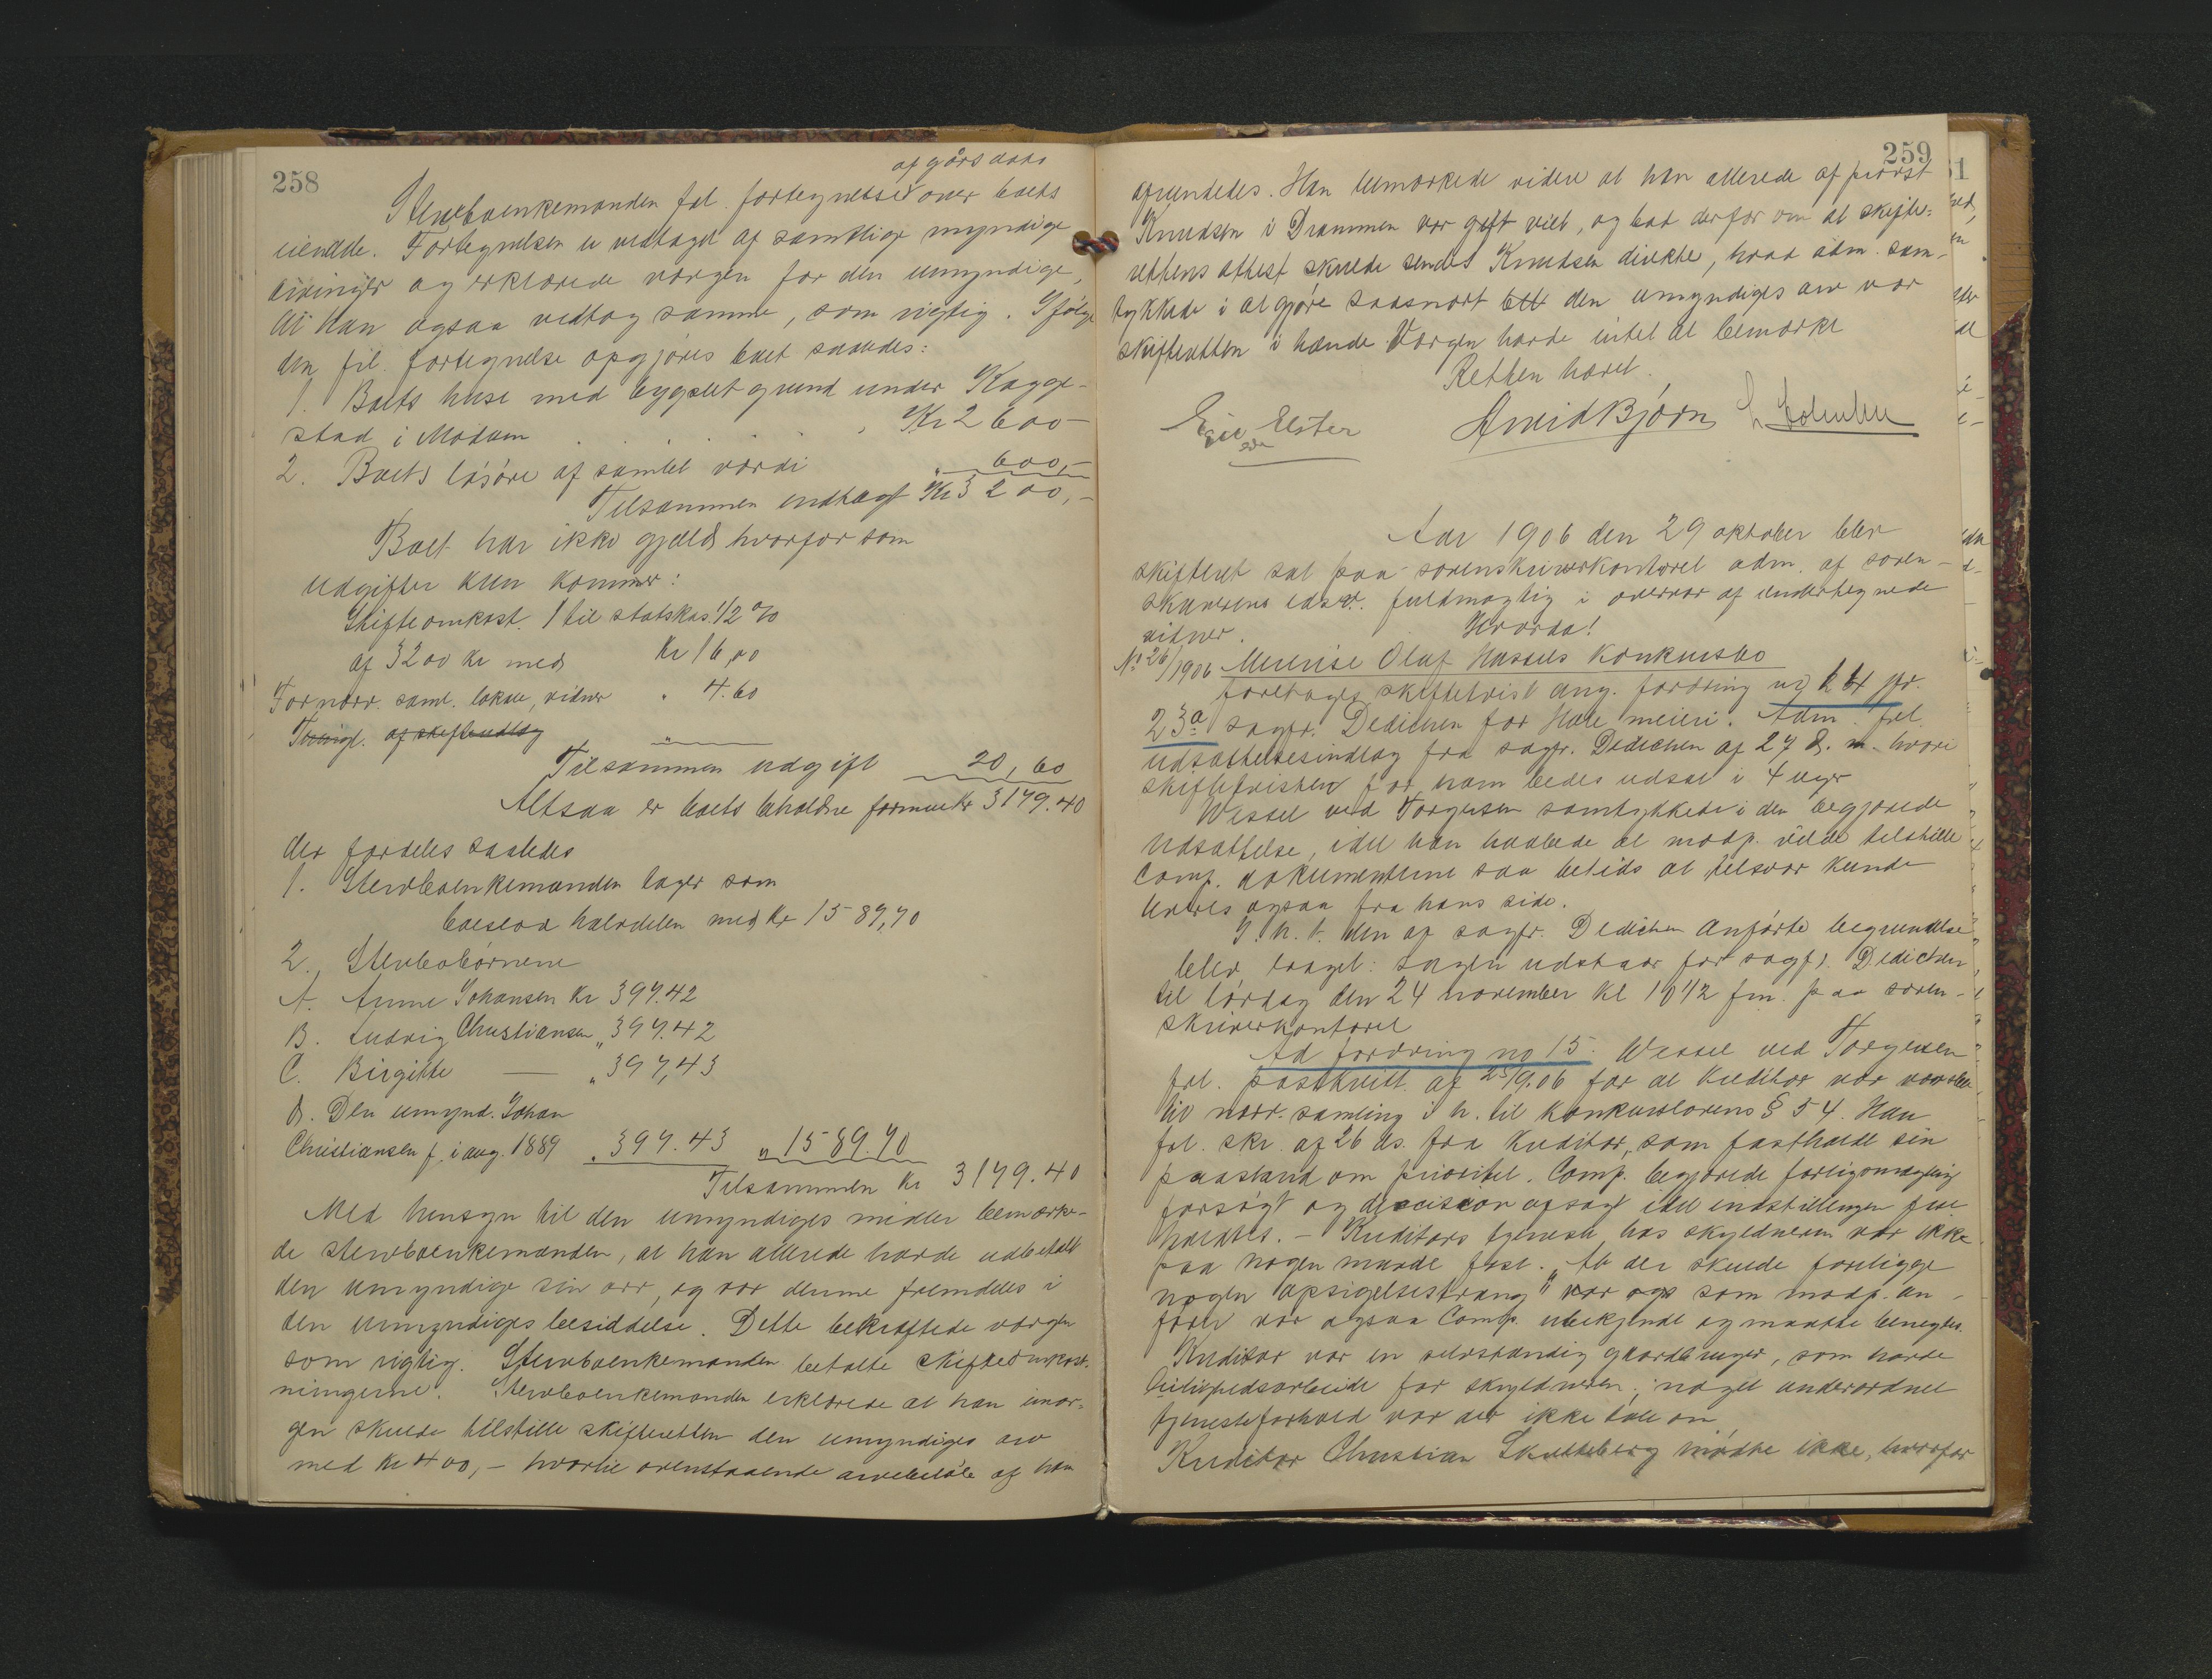 258
af gårs dato
Sterboenkemanden fol. fortegnelse over boets
eiendele. Fortegnelsen er vedtaget af samtlige myndige
arvinger og erklærede værgen for den umyndige,
at han ogsaa vedtog samme, som rigtig. Ifølge
den fil. fortegnelse opgjøres boet saaledes:
1. Boets huse med bygslet grund under Kagge-
stad i Modum . . . . . Kr 2600-
2. Boets løsøre af samlet værdi " 600,-
Tilsammen indtægt Kr 3200,-
Boet har ikke gjæld hvorfor som
udgifter kun kommer:
Skifteomkost. 1 til statskas. 1/2 %
af 3200 kr med Kr 16,00
Fornævn. saml. lokale, vidner " 4.60
af skifteudlæg "
Tilsammen udgift 20,60
Altsaa er boets beholdne formue Kr 3179.40
der fordeles saaledes
1. Sterboenkemanden tager som
boeslod halvdelen med Kr 1589,70
2. Sterbobørnene
A. Anne Johansen Kr 397.42
B. Ludvig Christiansen " 397.42
C. Birgitte — " 397,43
D. Den umynd. Johan
Christiansen f. i aug. 1889 " 397.43 " 1589.70
Tilsammen Kr 3179.40
Med hensyn til den umyndiges midler bemærke-
de sterboenkemanden, at han allerede havde udbetalt
den umyndige sin arv, og var denne fremdeles i
den umyndiges besiddelse. Dette bekræftede værgen
som rigtig. Sterboenkemanden betalte skifteomkost-
ningerne. Sterboenkemanden erklærede at han imor-
gen skulde tilstille skifteretten den umyndiges arv
med Kr 400,- hvortil ovenstaaende arvebeløb af ham
259
afrundedes. Han bemærkede videre at han allerede af provst
Knudsen i Drammen var gift viet, og bad derfor om at skifte-
rettens attest skulde sendes Knudsen direkte, hvad adm. sam-
tykkede i at gjøre saasnart den umyndiges arv var
skifteretten i hænde. Værgen havde intet at bemærke
Retten hævet.
Elster Arvid Bjørn
Aar 1906 den 29 oktober blev
skifteret sat paa sorenskriverkontoret adm. af soren-
skriverens edsv. fuldmægtig i overvær af undertegnede
vidner. Hvorda!
No 26/1906 Meierise Olaf Hassels Konkursbo
foretoges skiftetvist ang. fordring no 24 jfr.
23a sagfr. Dedichen for Hole meieri. Adm. frl.
udsættelsesindlæg fra sagfr. Dedichen af 27 d. m. hvori
skiftetvisten for ham bedes udsat i 4 uger
Wessel ved Torgersen samtykkede i den begjærede
udsættelse, idet han haabede at modp. vilde tilstille
Comp. dokumenterne saa betids at tilsvar kunde
leveres ogsaa fra hans side.
I. h. t. den af sagfr. Dedichen anførte begrundelse
blev taget: sagen udstaar for sagfr. Dedichen
til lørdag den 24 november kl 10 1/2 fm. paa soren-
skriverkontoret
Ad fordring no 15. Wessel ved Torgersen
frl. postkvitt. af 25/9.06 for at Kreditor var varslet
til nærv. samling i h. til konkurslovens § 54. Han
frl. skr. af 26 ds. fra Kreditor, som fastholdt sin
paastand om prioritet. Comp. begjærede forligsmægling
forsøgt og decision afsagt idet indstillingen fast-
holdtes. - Kreditors tjeneste hos skyldneren var ikke
paa nogen maade fast. At der skulde foreligge
nogen "opsigelsestvang" som modp. an-
fører var ogsaa Comp. ubekjendt og maatte benegtes.
Kreditor var en selvstændig gaardbruger, som havde
leilighedsarbeide for skyldneren; noget underordnet
tjenesteforhold var der ikke tale om.
Kreditor Christian Skutteberg mødte ikke, hvorfor